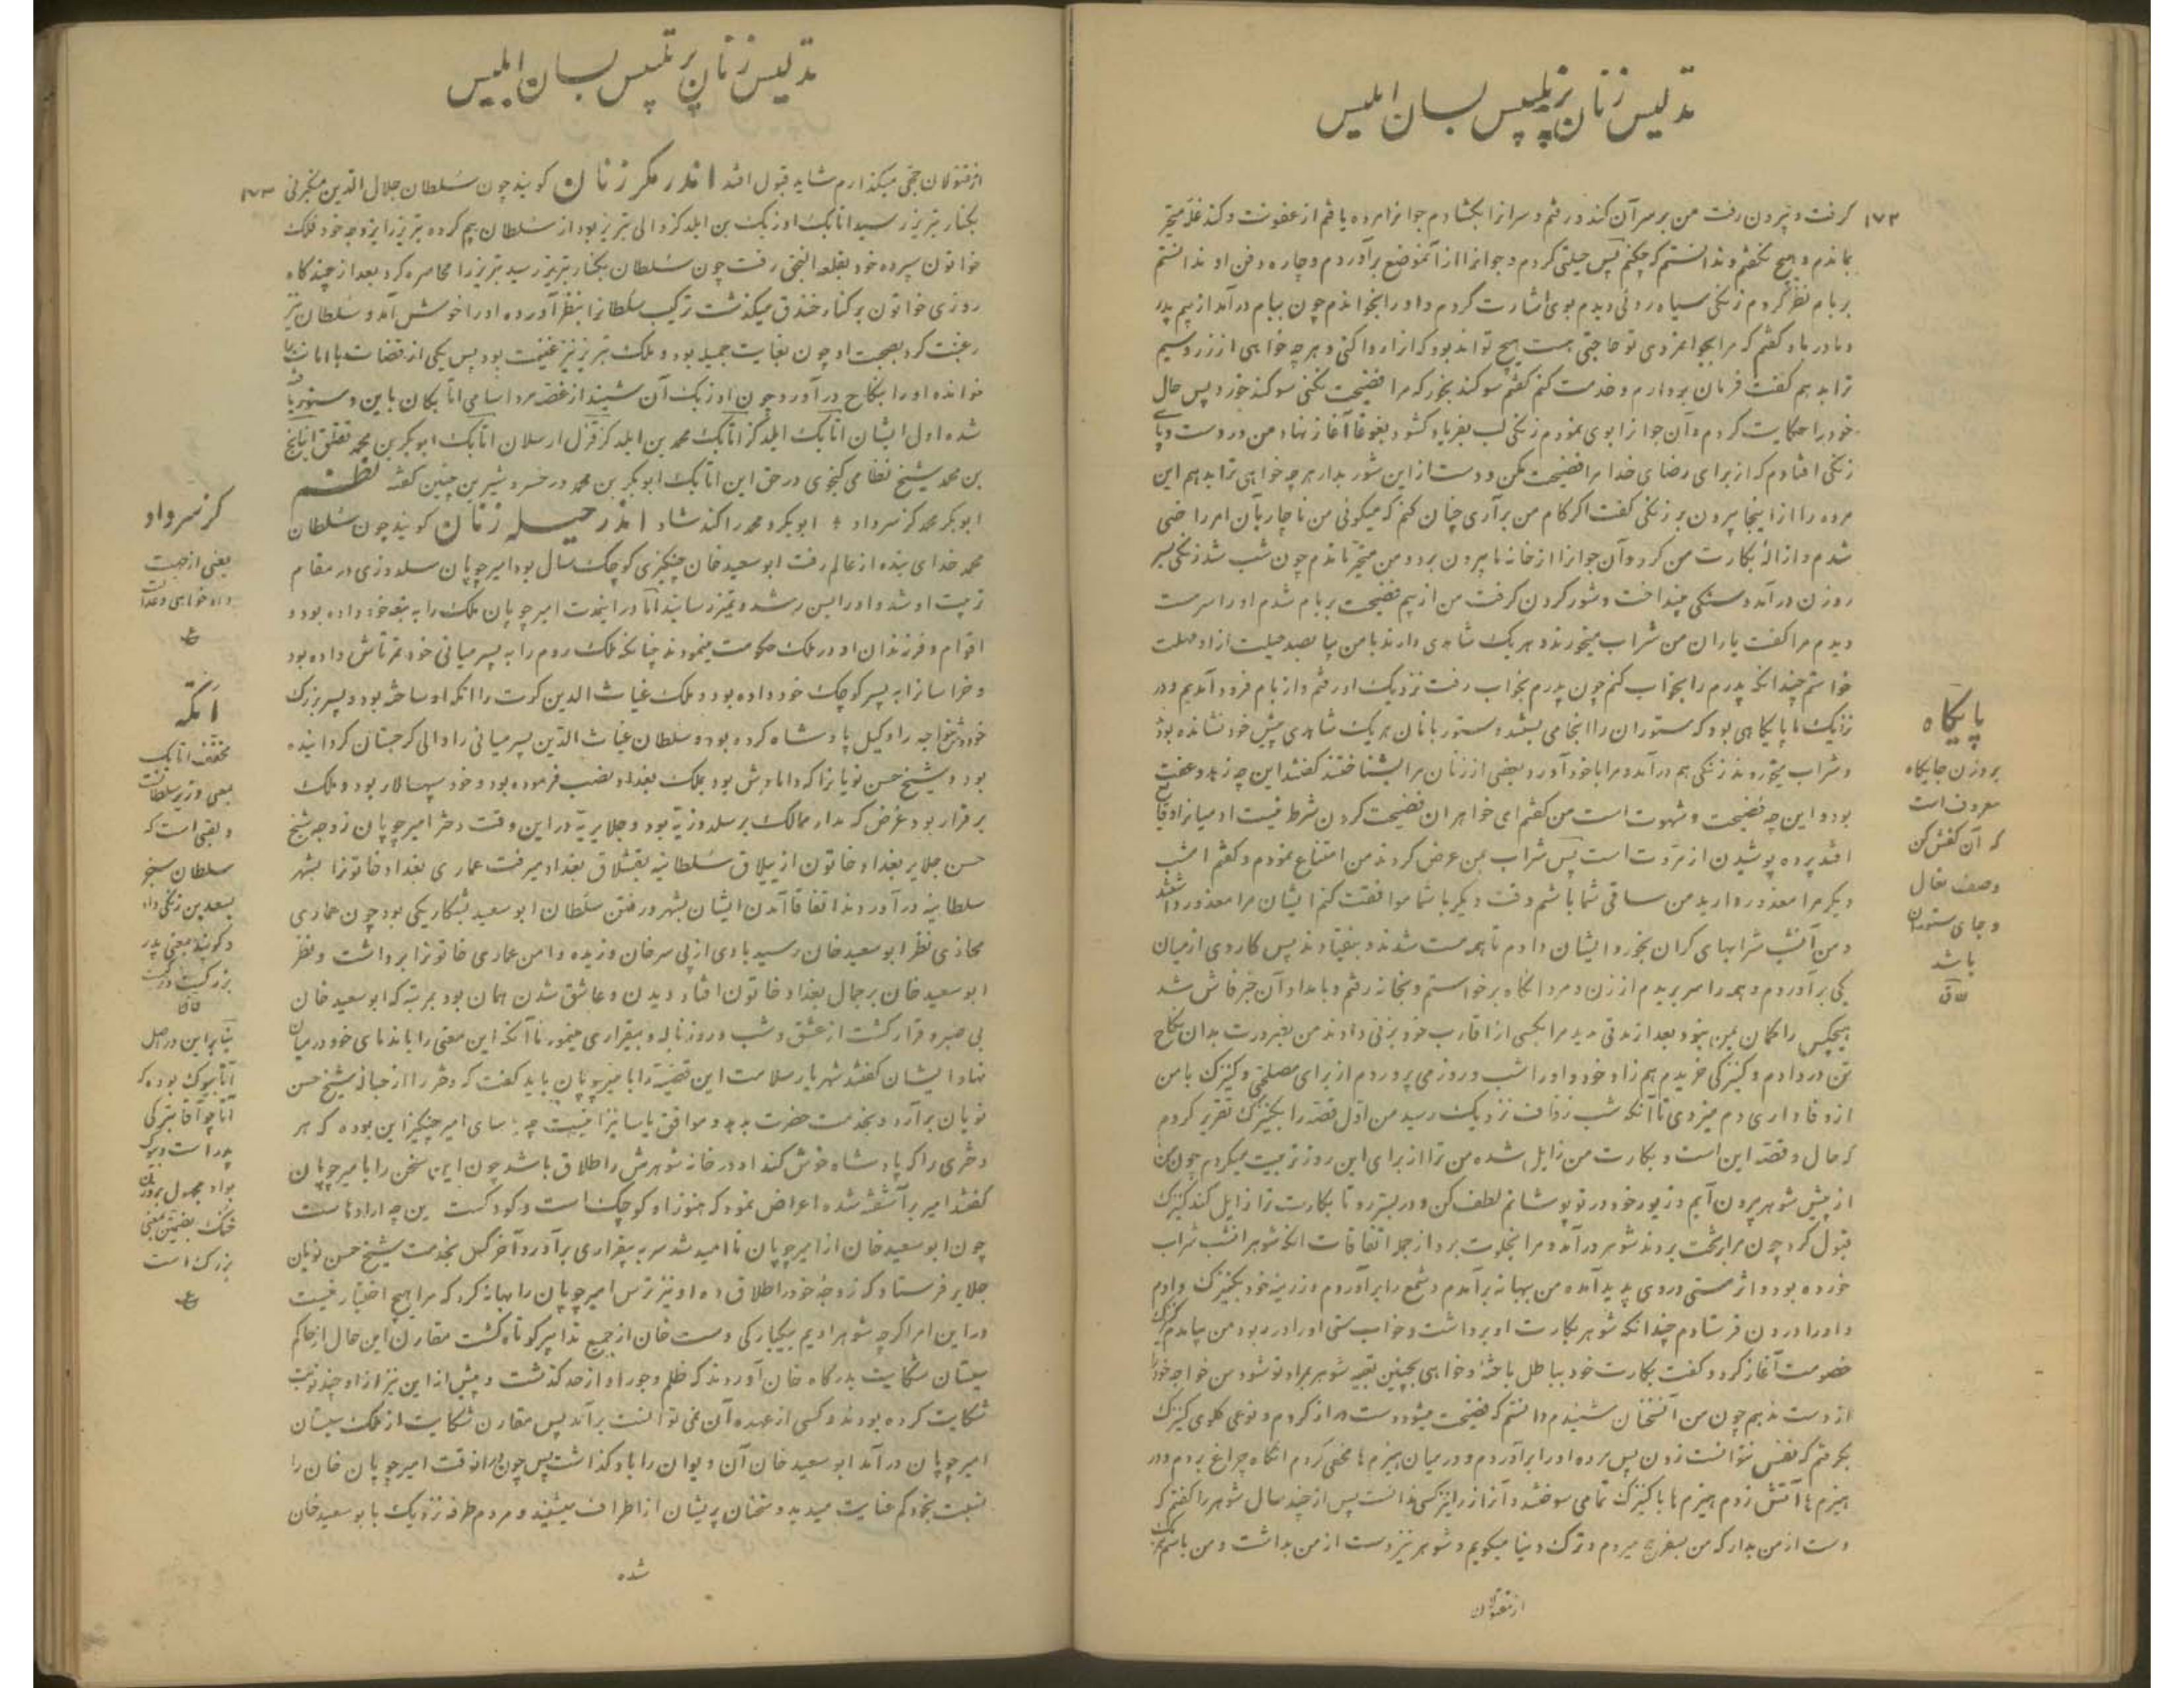 تدلیس زنان پر تلبیس بسان ابلیس
۱۷۲ گرفت و بیرون رفت من بر سر آن کند و رفتم و سر آنرا بکشادم جوانرا مرده یافتم از عفونت و کند غله متحیر
بماندم و هیچ نگفتم و ندانستم که چکنم پس حیلتی کردم و جوانرا از آنموضع برآوردم و چاره دفن او ندانستم
بر بام نظر کردم زنگی سیاه روئی دیدم بوی اشارت کردم و او را بخواندم چون ببام درآمد از بیم پدر
و مادر با او گفتم که مرا بجوانمردی تو حاجتی هست هیچ تواند بود که آنرا روا کنی و هر چه خواهی از زر و سیم
ترا بدهم گفت فرمان بردارم و خدمت کنم گفتم سوگند بخور که مرا فضیحت نکنی سوگند خورد پس حال
خود را حکایت کردم و آن جوانرا بوی نمودم زنگی لب بفریاد گشود و بغوغا آغاز نهاد من در دست و پای
زنگی افتادم که از برای رضای خدا مرا فضیحت مکن و دست از این شور بدار هر چه خواهی ترا بدهم این
مرده را از اینجا بیرون بر زنگی گفت اگر کام من برآری چنان کنم که میگوئی من ناچار بآن امر راضی
شدم و ازالهٔ بکارت من کرد و آن جوانرا از خانه ما بیرون برد و من متحیر ماندم چون شب شد زنگی بسر
روزن درآمد و سنگی بینداخت و شور کردن گرفت من از بیم فضیحت بر بام شدم او را سرمست
دیدم مرا گفت یاران من شراب میخورند و هر یک شاهدی دارند با من بیا بصد حیلت از او مهلت
خواستم چندانکه پدرم را بخواب کنم چون پدرم بخواب رفت نزدیک او رفتم و از بام فرود آمدیم و در
نزدیک ما پایگاهی بود که ستوران را آنجا می بستند و ستوربانان هر یک شاهدی پیش خود نشانده بود
و شراب میخوردند زنگی هم درآمد و مرا با خود آورد و بعضی از زنان مرا بشناختند گفتند این چه زهد و عفت
بود و این چه فضیحت و شهوت است من گفتم ای خواهران فضیحت کردن شرط نیست او میانرا وقایع
افتد پرده پوشیدن از مروت است پس شراب بمن عرض کردند من امتناع نمودم و گفتم امشب
دیگر مرا معذور دارید من ساقی شما باشم وقت دیگر با شما موافقت کنم ایشان مرا معذور داشتند
و من آنشب شرابهای گران بخورد ایشان دادم تا همه مست شدند و بیفتادند پس کاردی از میان
یکی برآوردم و همه را سر بریدم از زن و مرد آنگاه برخواستم و بخانه رفتم و بامداد آن خبر فاش شد
هیچکس را گمان بمن نبود بعد از مدتی مدید مرا بکسی از اقارب خود بزنی دادند من بضرورت بدان نکاح
تن در دادم و کنیزکی خریدم هم زاد خود و او را شب و روز می پروردم از برای مصلحتی و کنیزک با من
از وفاداری دم میزدی تا آنکه شب زفاف نزدیک رسید من اول قصه را بکنیزک تقریر کردم
که حال و قصه این است و بکارت من زایل شده من ترا از برای این روز تربیت میکردم چون من
از پیش شوهر بیرون آیم و زیور خود در تو پوشانم لطف کن و در بستر رو تا بکارت ترا زایل کند کنیزک
قبول کرد چون مرا بتخت بردند شوهر درآمد و مرا بخلوت برد از جمله اتفاقات آنکه شوهر آنشب شراب
خورده بود و اثر مستی در وی پدید آمده من ببهانه برآمدم و شمع را برآوردم و زرینه خود بکنیزک دادم
و او را درون فرستادم چندانکه شوهر بکارت او برداشت و خواب مستی او را در ربود من بیامدم کنیزک
خصومت آغاز کرد و گفت بکارت خود بباطل باخته و خواهی بچنین تعبیه شوهر بمراد تو شود من خواجه خود را
از دست ندهم چون من آن سخنان شنیدم دانستم که فضیحت میشود دست دراز کردم و نوعی گلوی کنیزک
بگرفتم که نفس نتوانست زدن پس مرده او را برآوردم و در میان هیزم ها مخفی کردم آنگاه چراغ بردم و در
هیزم ها آتش زدم هیزم ها با کنیزک تمامی سوختند و آن راز را نیز کسی ندانست پس از چند سال شوهر را گفتم که
دست از من بدار که من بسفر حج میروم و ترک دنیا میگویم و شوهر نیز دست از من بداشت و من
از مقبولان
پایگاه
بروزن جایگاه
معروف است
که آن کفش کن
وصف نعال
و جای ستوران
باشد
تدلیس زنان پر تلبیس بسان ابلیس
از مقبولان حجی میگذارم شاید قبول افتد اندر مکر زنان گویند چون سُلطان جلال الدین منکبرنی ۱۷۳
بکنار تبریز رسید اتابک اوزبک بن ایلدگز والی تبریز بود از سُلطان بیم کرده تبریز را بزوجه خود ملک
خواتون سپرده خود بقلعه النجق رفت چون سُلطان بکنار تبریز رسید تبریز را محاصره کرد بعد از چندگاه
روزی خواتون بر کنار خندق میگذشت ترکیب سلطانرا بنظر آورده او را خوش آمد و سُلطان نیز
رغبت کرد بصحبت او چون بغایت جمیله بود و ملک تبریز نیز غنیمت بود پس یکی از قضات با امانت را
خوانده او را بنکاح درآورد چون اوزبک آن شنید از غصه مرد اسامی اتابکان باین دستور
شده اول ایشان اتابک ایلدگز اتابک محمد بن ایلدگز قزل ارسلان اتابک ابوبکر بن محمد قتلغ اینانج
بن محمد شیخ نظامی گنجوی در حق این اتابک ابوبکر بن محمد در خسرو شیرین چنین گفته نظم
ابوبکر محمد کز سر داد ؛ ابوبکر و محمد را کند شاد اندر حیله زنان گویند چون سُلطان
محمد خدای بنده از عالم رفت ابو سعید خان چنگیزی کوچک سال بود امیر چوپان سلدوزی در مقام
تربیت او شد و او را بسن رشد و تمیز رسانید اما در اینمدت امیر چوپان ملک را به بنعه خود داده بود و
اقوام و فرزندان او در ملک حکومت مینمودند چنانکه ملک روم را به پسر میانی خود تمرتاش داده بود
و خراسانرا به پسر کوچک خود داده بود و ملک غیاث الدین کرت را اتکه او ساخته بود و پسر بزرگ
خود دمشق خواجه را وکیل پادشاه کرده بود و سلطان غیاث الدین پسر میانی را والی گرجستان گردانیده
بود و شیخ حسن نویانرا که دامادش بود بملک بغداد نصب فرموده بود و خود سپهسالار بود و ملک
برقرار بود غرض که مدار ممالک بر سلدوزیه بود و جلایریه در این وقت دختر امیر چوپان زوجه شیخ
حسن جلایر بغداد خاتون از ییلاق سُلطانیه بقشلاق بغداد میرفت عماری بغداد خاتونرا بشهر
سلطانیه درآوردند اتفاقا آمدن ایشان بشهر و رفتن سُلطان ابو سعید بشکار یکی بود چون عماری
محاذی نظر ابو سعید خان رسید بادی از پی سر خان وزیده دامن عماری خاتونرا برداشت و نظر
ابو سعید خان بر جمال بغداد خاتون افتاد دیدن و عاشق شدن همان بود بمرتبه که ابو سعید خان
بی صبر و قرار گشت از عشق و شب و روز ناله و بیقراری مینمود تا آنکه این معنی را با ندمای خود در میان
نهاد ایشان گفتند شهریار سلامت این قضیه را با میر چوپان باید گفت که دختر را از حباله شیخ حسن
نویان برآرد و بخدمت حضرت بدهد و موافق یاسا نیز هست چه یاسای امیر چنگیز این بوده که هر
دختری را که پادشاه خوش کند او در خانه شوهرش را طلاق باشد چون این سخن را با میر چوپان
گفتند امیر برآشفته شده اعراض نمود که هنوز او کوچک است و کودکست این چه اراده است
چون ابو سعید خان از امیر چوپان نا امید شد سر به بیقراری برآورد آخر کس بخدمت شیخ حسن نویان
جلایر فرستاد که زوجه خود را طلاق ده او نیز ترس امیر چوپان را بهانه کرد که مرا هیچ اختیار نیست
در این امر اگر چه شوهر اویم بیکبارگی دست خان از جمیع تدابیر کوتاه گشت مقارن این حال از حاکم
سیستان شکایت بدرگاه خان آوردند که ظلم و جور او از حد گذشت و پیش از این نیز از او چند نوبت
شکایت کرده بودند و کسی از عهده آن نمی توانست برآمد پس مقارن شکایت از ملک سیستان
امیر چوپان درآمد ابو سعید خان آن دیوان را باو گذاشت پس چون درانوقت امیر چوپان خان را
نسبت بخود کم عنایت میدید و سخنان پریشان از اطراف میشنید و مردم طرفه نزدیک با بو سعید خان
شده
کز سر داد
یعنی از جهت
داد خواهی و عدالت
اتکه
مخفف اتابک
بمعنی وزیر سلطنت
و لقبی است که
سلطان سنجر
بسعد بن زنگی داد
و گویند بمعنی پدر
بزرگست
بنا براین در اصل
آتابیوک بوده که
آتا چو آقا بترکی
پدر است و بیوک
بواو مجهول بروزن
خنک بضمتین بمعنی
بزرگ است